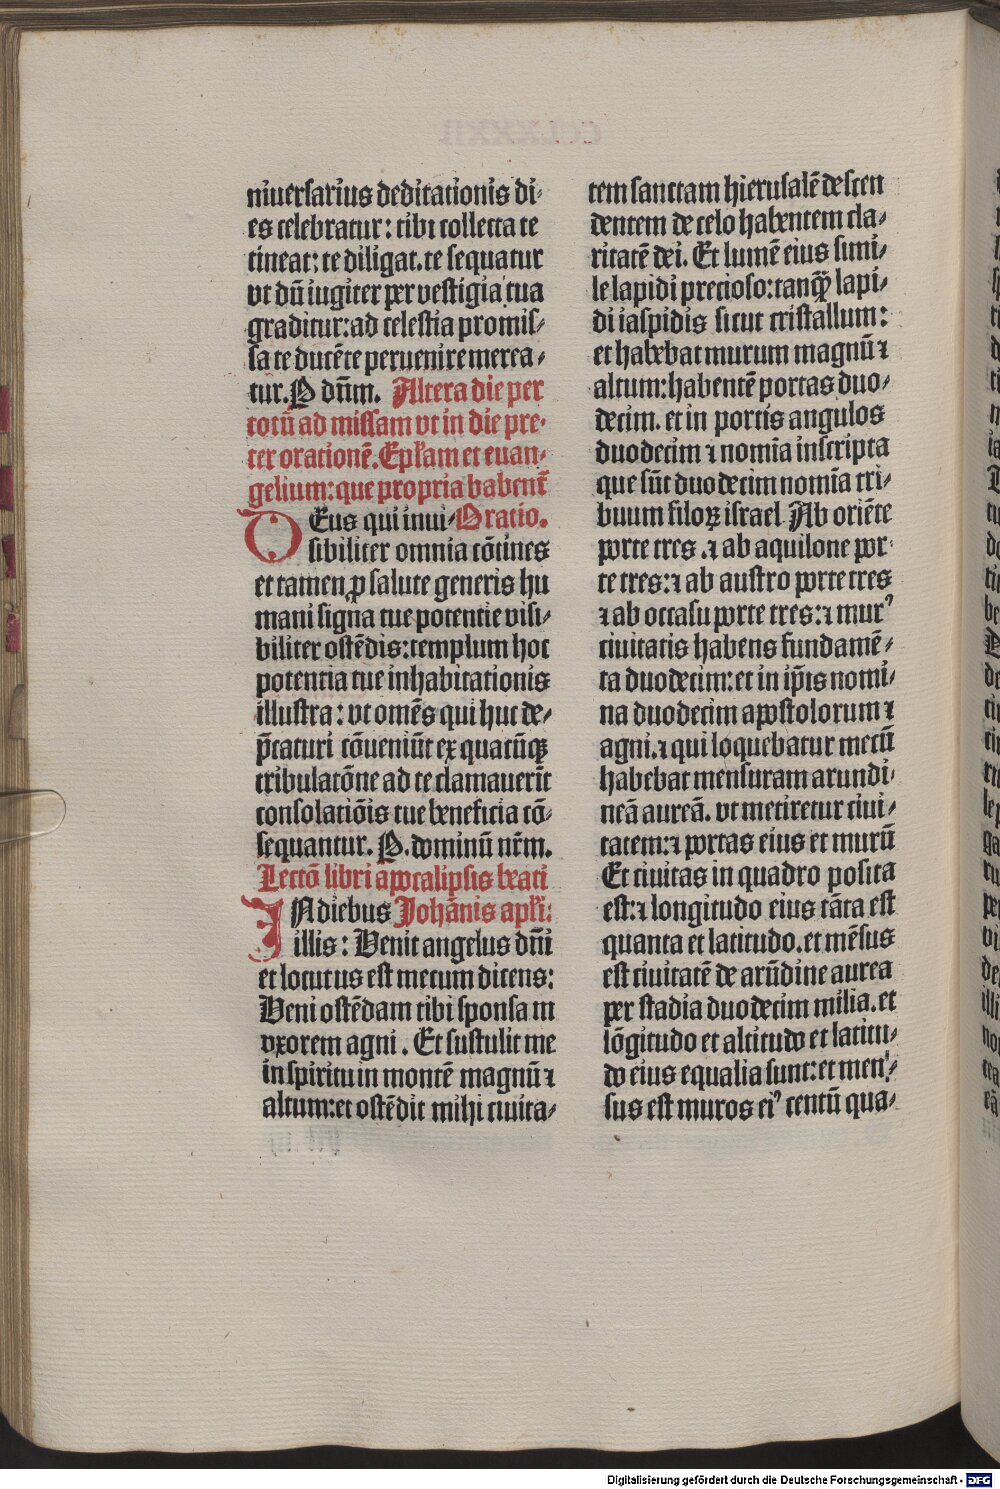 niuersarius dedicationis di-
es celebratur: tibi collecta te
tineat: te diligat. te sequatur
vt dū iugiter per vestigia tua
graditur: ad celestia promis-
sa te ducēte peruenire merea-
tur. P dn̄m. Altera die per
totū ad missam vt in die pre-
ter orationē. Ep̄lam et euan-
gelium: que propria habent̄
DEus qui inui- Oratio.
sibiliter omnia cōtines
et tamen ꝓ salute generis hu
mani signa tue potentie visi-
biliter ostēdis: templum hoc
potentia tue inhabitationis
illustra: vt omēs qui huc de-
p̄caturi cōueniūt ex quacūqꝫ
tribulatōne ad te clamauerīt
consolatiōis tue beneficia cō-
sequantur. P. dominū nr̄m.
Lectō libri apocalipsis beati
IN diebus Johānis apl̄i:
illis: Venit angelus dn̄i
et locutus est mecum dicens:
Veni ostēdam tibi sponsa m
vxorem agni. Et sustulit me
in spiritu in montē magnū ⁊
altum: et ostēdit mihi ciuita-
tem sanctam hierusalē descen
dentem de celo habentem cla-
ritatē dei. Et lumē eius simi-
le lapidi precioso: tanqꝫ lapi-
di iaspidis sicut cristallum:
et habebat murum magnū ⁊
altum: habentē portas duo-
decim. et in portis angulos
duodecim ⁊ nomīa inscripta
que sūt duodecim nomīa tri-
buum filoꝝ israel Ab oriēte
porte tres. ⁊ ab aquilone por-
te tres: ⁊ ab austro porte tres
⁊ ab occasu porte tres: ⁊ murꝰ
ciuitatis habens fundamē-
ta duodecim: et in ip̄is nomi-
na duodecim apostolorum ⁊
agni. ⁊ qui loquebatur mecū
habebat mensuram arundi-
neā aureā. vt metiretur ciui-
tatem: ⁊ portas eius et murū
Et ciuitas in quadro posita
est: ⁊ longitudo eius tāta est
quanta et latitudo. et mēsus
est ciuitatē de arūdine aurea
per stadia duodecim milia. et
lōgitudo et altitudo et latitu-
do eius equalia sunt: et men-
sus est muros eiꝰ centū qua-
Digitalisierung gefördert durch die Deutsche Forschungsgemeinschaft - DFG